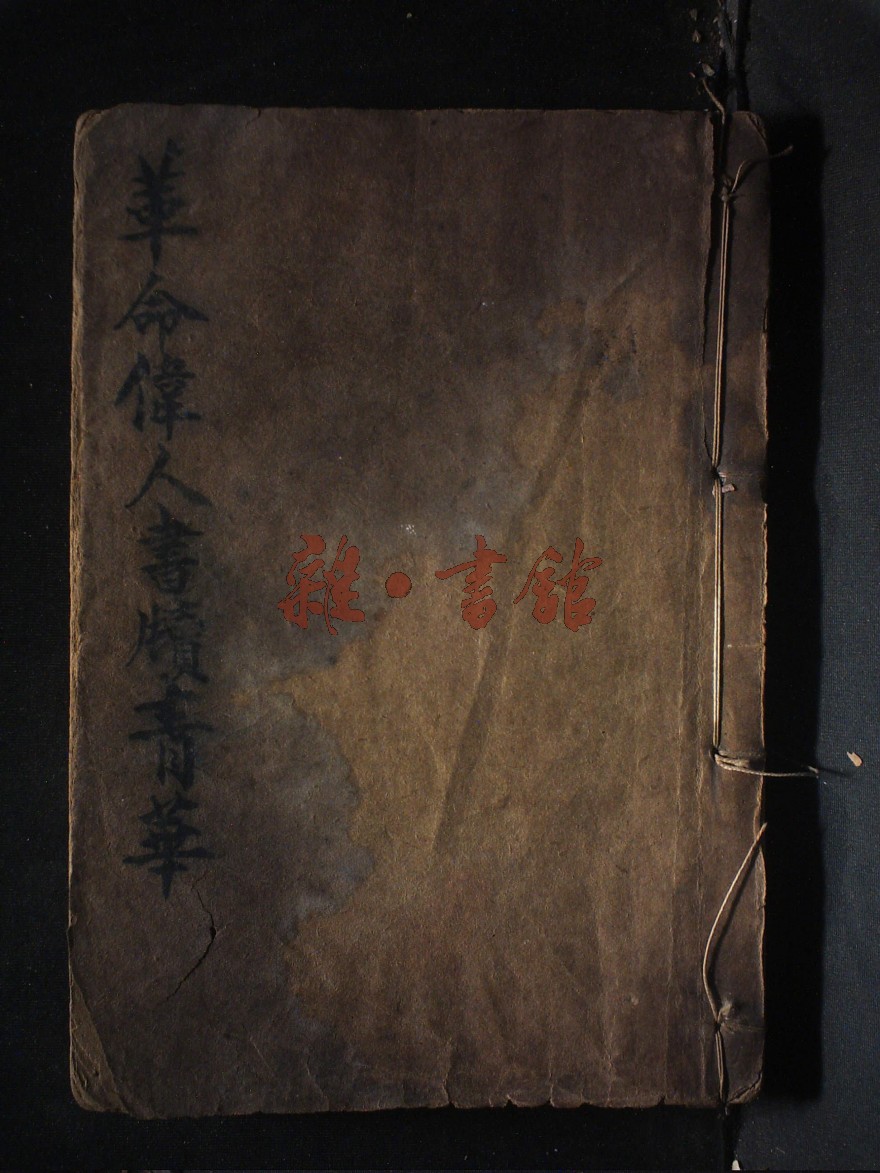 革命偉人書牘菁華
雜·書館